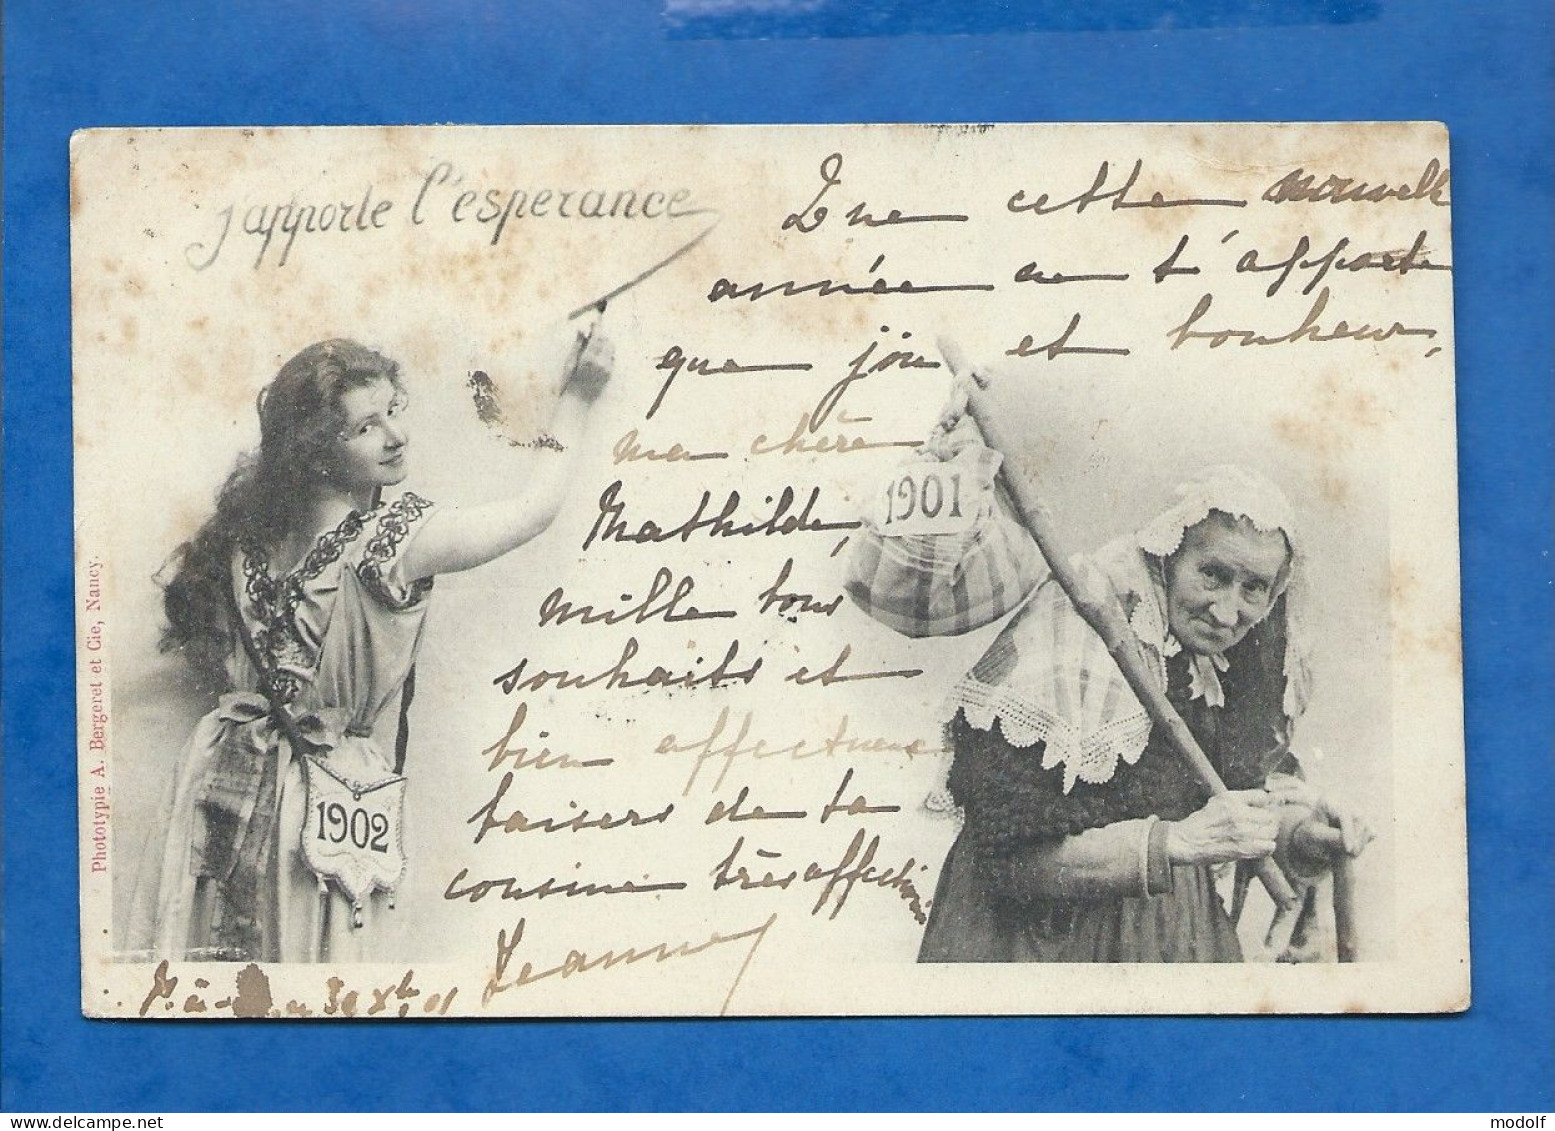 j'apporte l'espérance
Que cette nouvelle
année ne t'apporte
que joie et bonheur,
ma chère
Mathilde,
mille bons
souhaits et
bien affectueux
baisers de ta
cousine très affectionnée
Jeanne
P. à- 30 Xbre 01
1901
1902
Phototypie A. Bergeret et Cie, Nancy.
www.delcampe.net
modolf